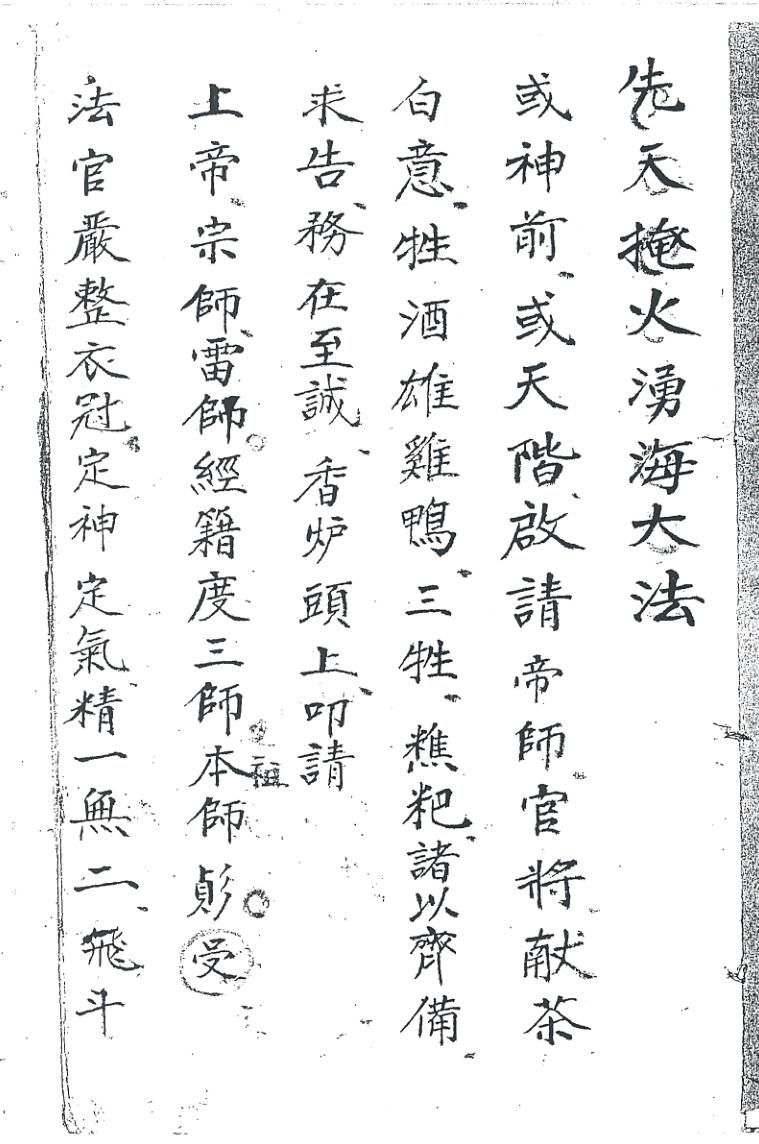 先天掩火湧海大法
或神前或天階啟請帝師官將献茶
白意牲酒雄雞鴨三牲樵粑諸以齊備
求告務在至誠香炉頭上叩請
上帝宗師雷師經籍度三師本師受
祖
法官嚴整衣冠定神定氣精一無二飛斗